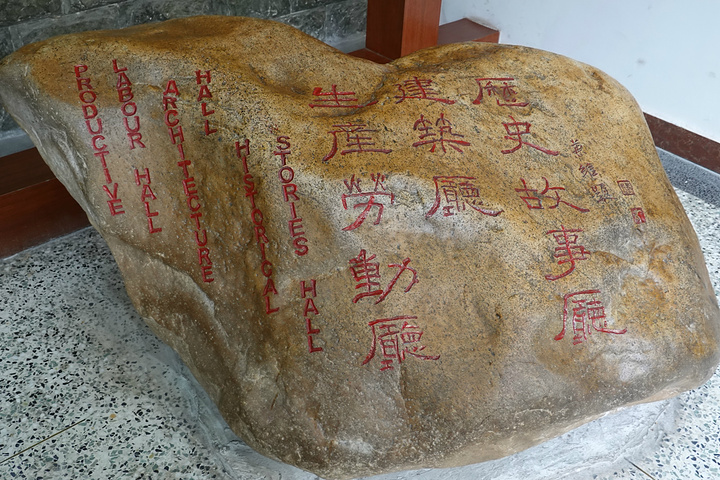 歷史故事廳
建築廳
生產勞動廳
HISTORICAL
STORIES HALL
ARCHITECTURE
HALL
PRODUCTIVE
LABOUR HALL